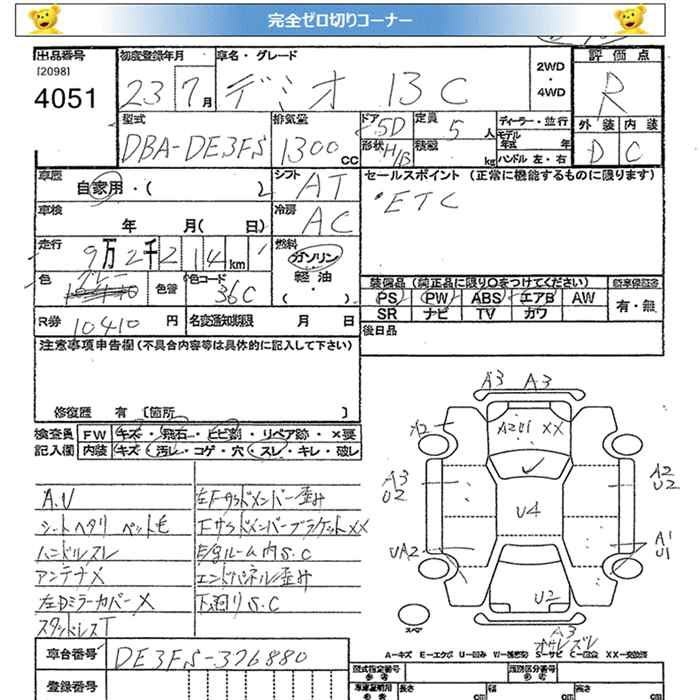 完全ゼロ切りコーナー
出品番号 初度登録年月 車名・グレード 2WD・4WD 評価点
[2098]
4051 23 7月 デミオ 13C R
型式 排気量 ドア 定員 ディーラー・並行 外装 内装
DBA-DE3FS 1300CC 5D 5人 モデル年式 年 D C
形状 H/B 積載 kg ハンドル 左・右
車歴 自家用・( ) シフト AT セールスポイント (正常に機能するものに限ります)
車検 年 月( 日) 冷房 AC ・ETC
走行 9万2千214km 燃料 ガソリン・軽油・( )
色 グレー 色替 色コード 36C 装備品 (純正品に限り○をつけてください) 新車保証書
PS PW ABS エアB AW 有・無
SR ナビ TV カワ
R券 10410円 名変通知期限 月 日 後日品
注意事項申告欄 (不具合内容等は具体的に記入して下さい)
修復歴 有 [箇所 ]
検査員 FW キズ・飛石・ヒビ割・リペア跡・×要
記入欄 内装 キズ・汚レ・コゲ・穴・スレ・キレ・破レ
A.U 左Fサイドメンバー歪み
シートヘタリ ペット毛 FサイドメンバーブラケットXX
ハンドルスレ E/gルーム内S.C
アンテナX エンドパネル歪み
左ドアミラーカバーX 下廻りS.C
スタッドレスT
A3 A3
A2 A2U1 XX
A3 U2 A2 U2
U4
UA2 A1 U1
U2
スペア A3
A-キズ E-エクボ U-凹み W-補修跡 S-サビ C-腐蝕 XX-交換済
車台番号 DE3FS-376880 型式指定番号 類別区分番号
登録番号 長さ 幅 高さ